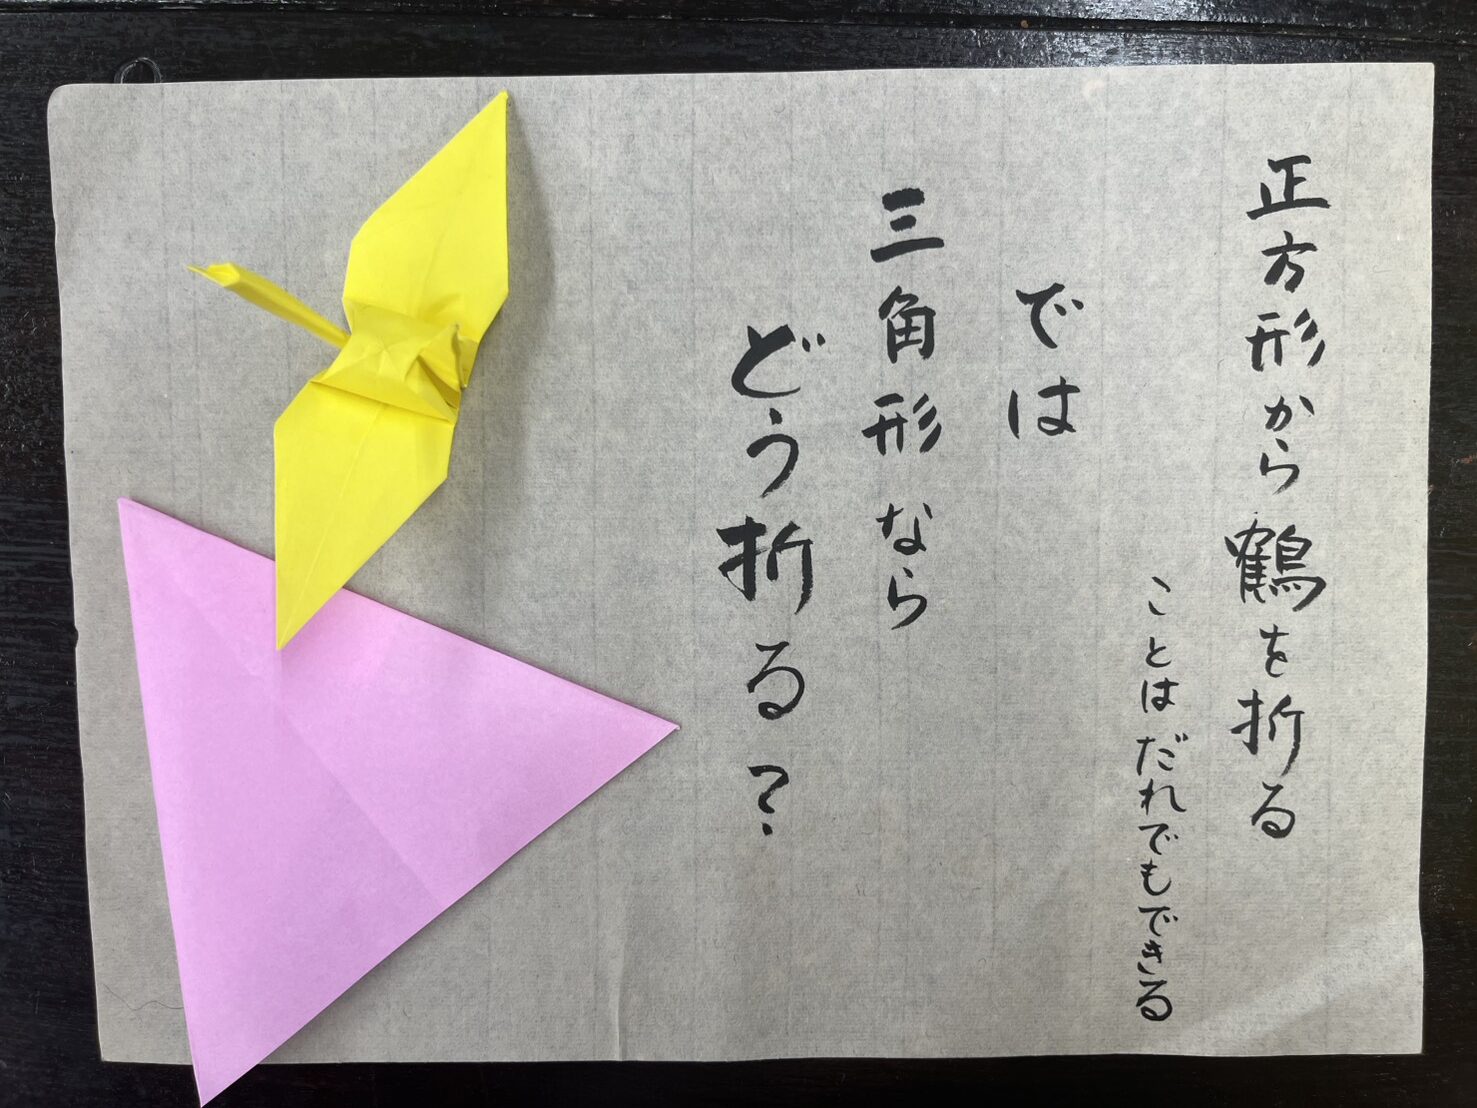 正方形から鶴を折る
ことはだれでもできる
では
三角形なら
どう折る?